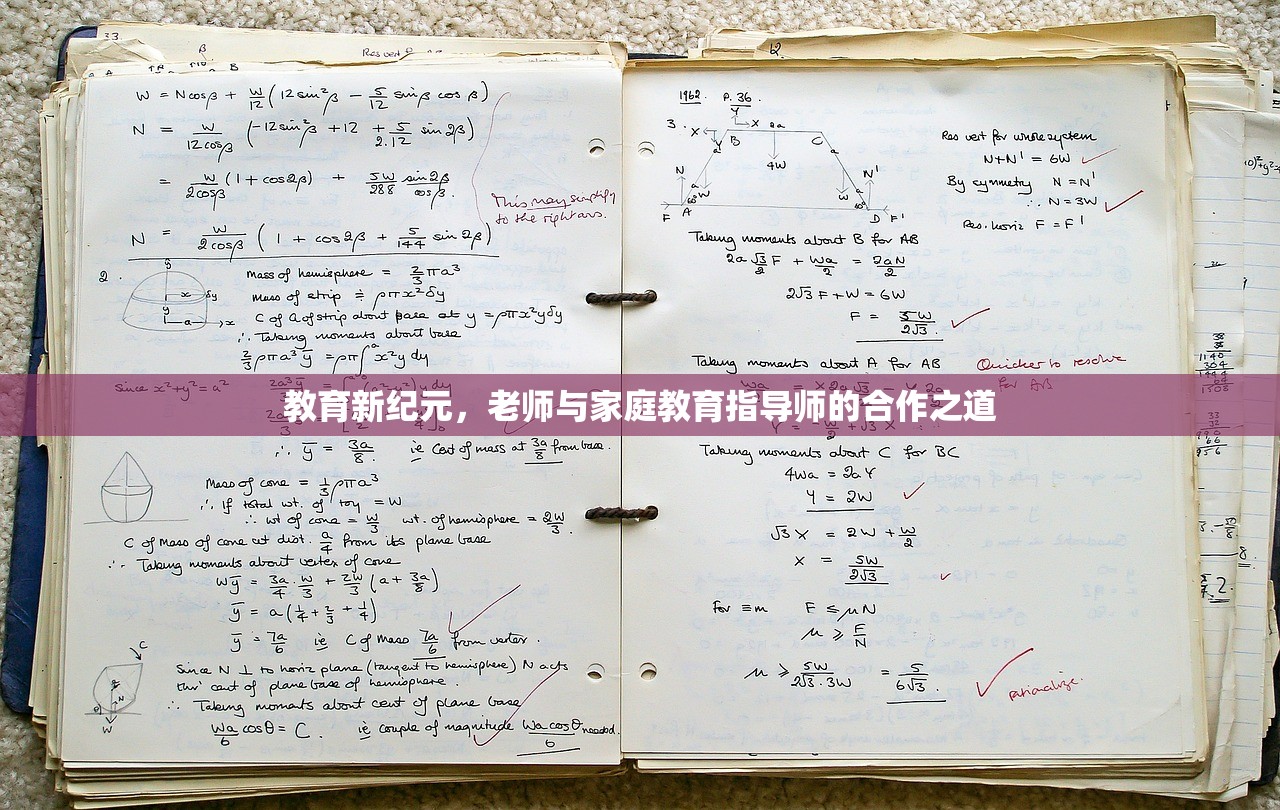 33.
β
Res vert
W = Ncosβ + W/12 (12 sin²β − 5/12 sinβ cosβ)
N = W/12cosβ (−12sin²β + 12 + 5/2.12 sin 2β)
= W/2cosβ (1 + cos2β) + 5W/288 sin2β/cosβ.
This may simplify
to the right ans.
N = W/2cosβ (1 + cos2β + 5/144 sin 2β)
2.
y
x δy
y
a x
Mass of hemisphere = 2/3 πa³
mass of strip ≑ ρπx²δy
C of G of strip about base at y = ρπx²yδy
∴ Taking moments about base
2/3 ρπa³ȳ = ρπ∫ᵃx²y dy
since x²+y²=a²
教育新纪元，老师与家庭教育指导师的合作之道
∴ ȳ = 3a/8 ie Cent of mass at 3a/8 from base.
Mass of cone = 1/3 ρπa³
∴ If total wt. of toy = W
∴ wt of cone = W/3 wt. of hemisphere = 2W/3.
C of Mass of cone at dist. a/4 from its plane base
∴ Taking moments about vertex of cone
Wȳ = 3a/4 . W/3 + 2W/3 (a + 3a/8)
ȳ = a(1/4 + 2/3 + 1/4)
ȳ = 7a/6 ie C of Mass 7a/6 from vertex.
C
N
θ
W
Since N ⊥ to horiz plane (tangent to hemisphere) N acts
thro' cent of plane base of hemisphere.
∴ Taking moments about cent of plane base
Wa/6 cosθ = C. ie couple of magnitude Wa cosθ/6 needed.
12
1962. P. 36.
3.
Y
X 2a
X B C
4W
N N'
W W
60° 60°
F A D F'
Res vert for whole system
N+N' = 6W
By symmetry N = N'
∴ N = 3W
Res. horiz F = F'
Taking moments about B for AB
2a √3/2 F + Wa/2 = 2aN/2
2√3 F + W = 6W
F = 5W/2√3.
Taking moments about A for AB
Quicker to resolve
for AB
Taking moments about C for BC
4Wa = 2aY
Y = 2W
√3 X = 2W + W/2
X = 5W/2√3
For ≡m F ≤ μN
μ ≥ F/N
μ ≥ 5W/2√3.3W = 5/6√3.
rationalize.